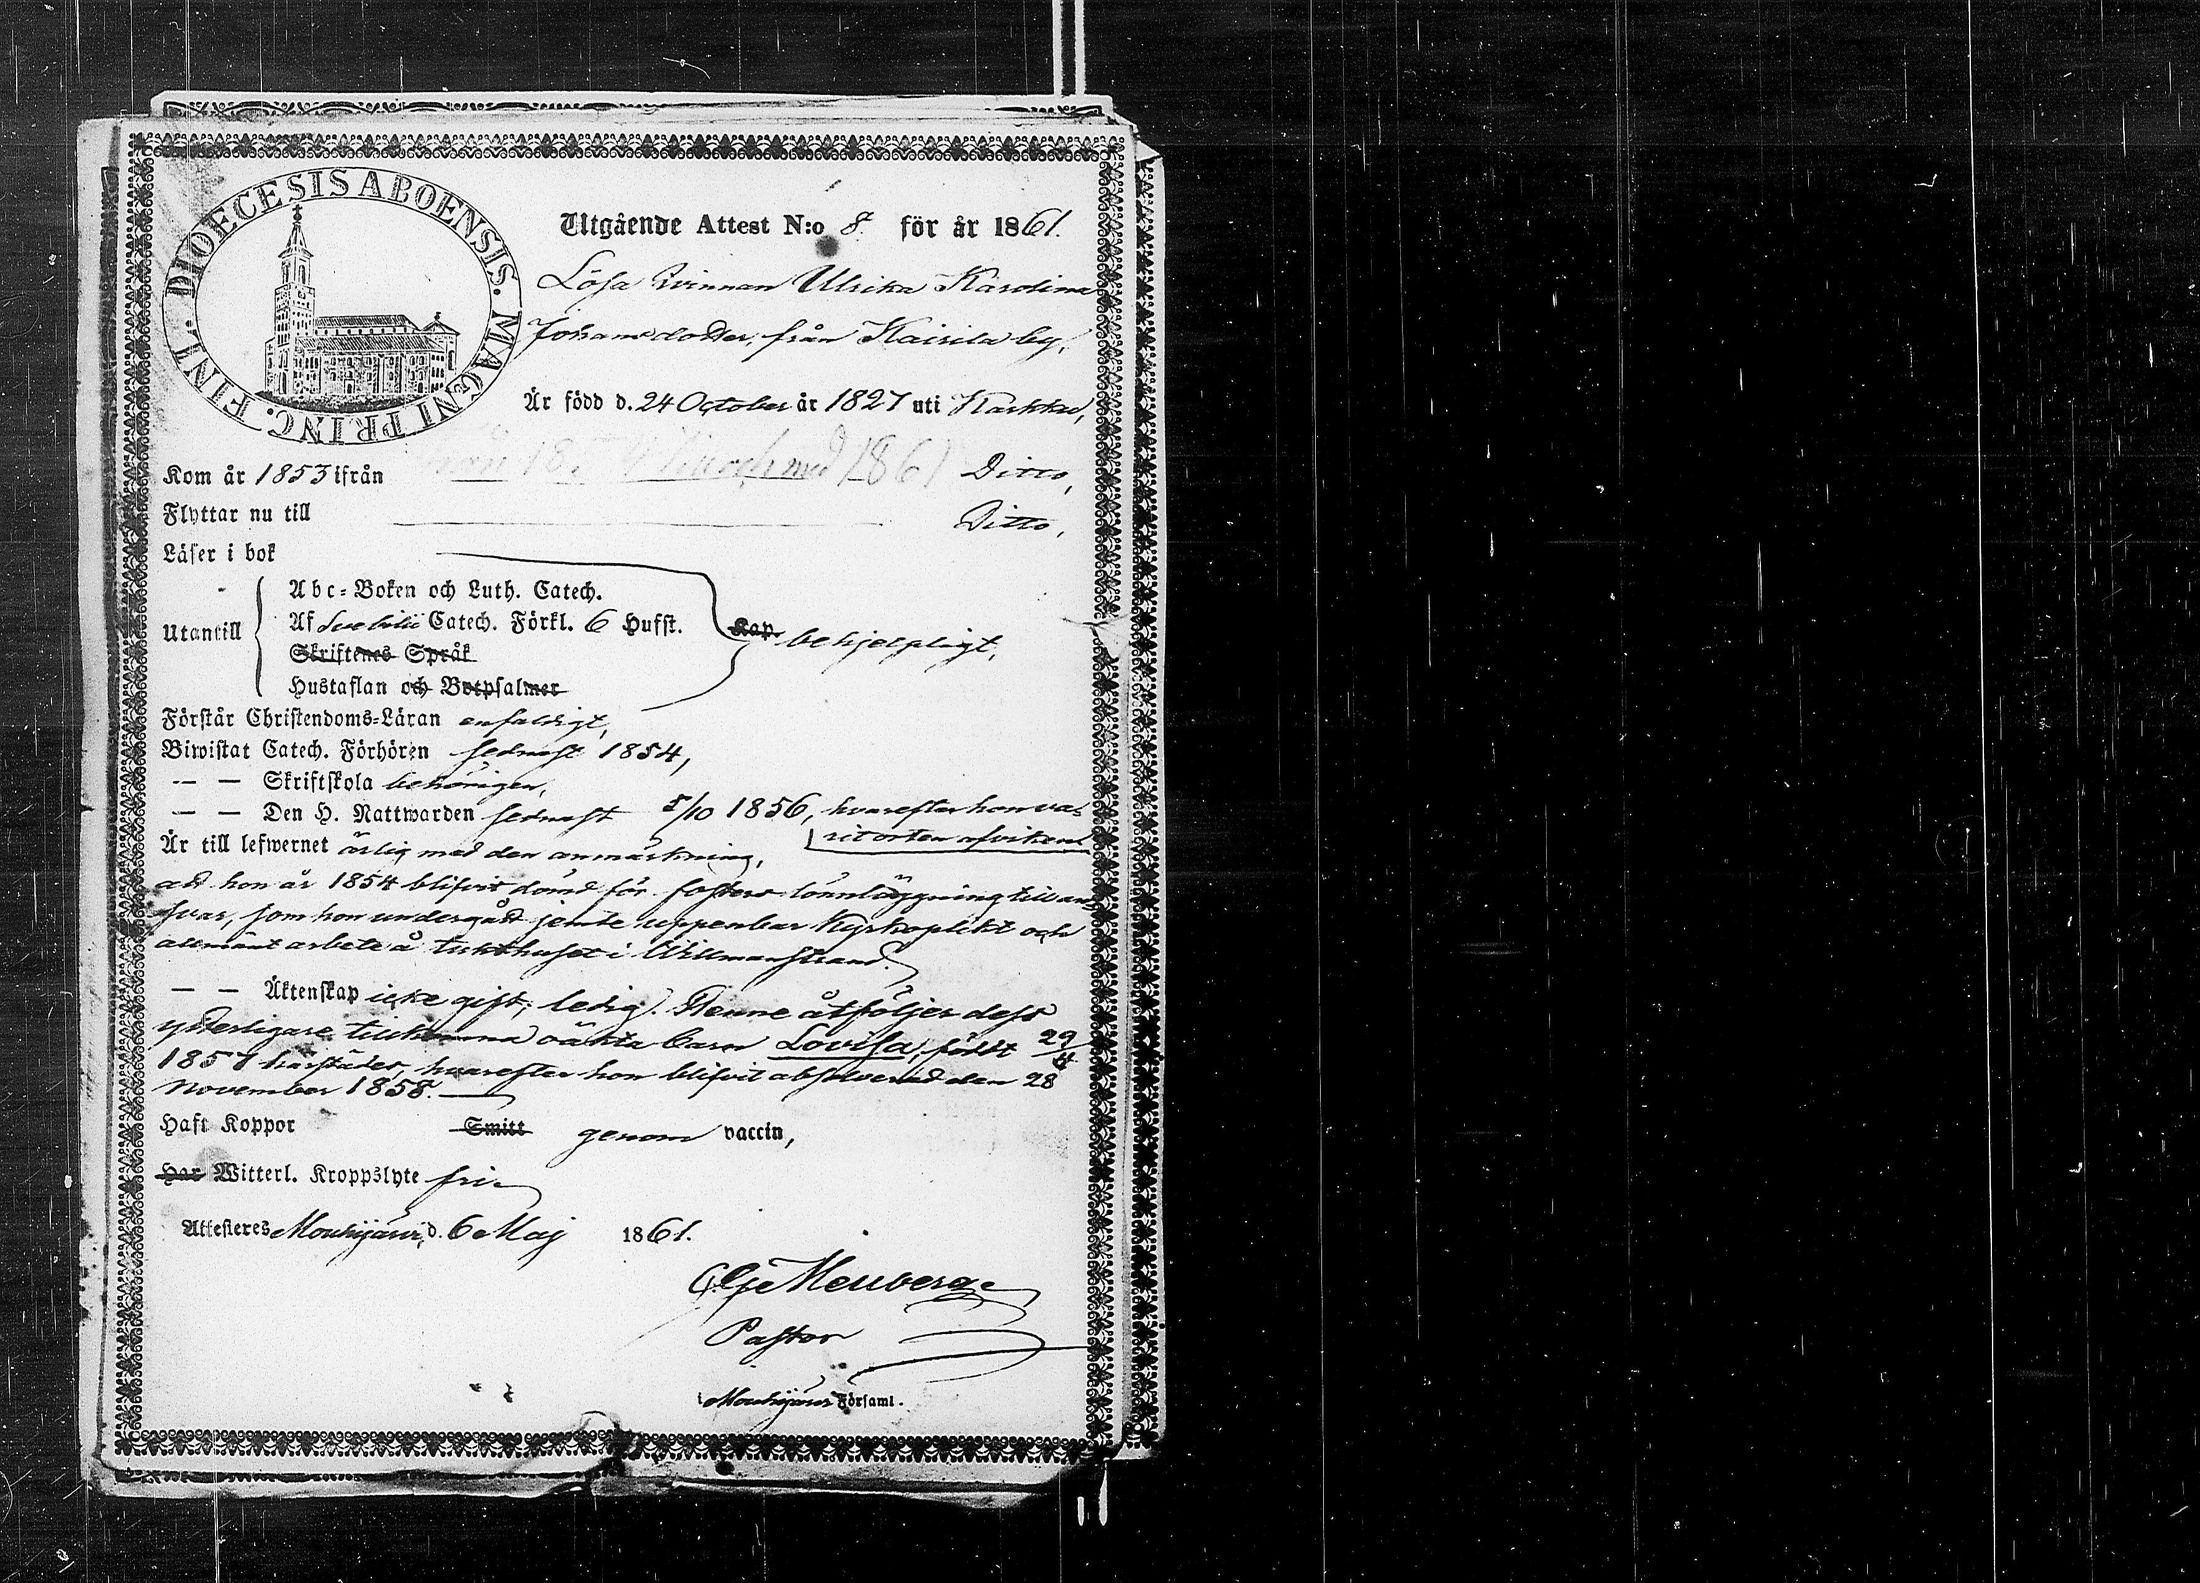 DIOECESIS ABOENSIS. MAGNI PRINC. FINL.
Utgående Attest N:o 8. för år 1861.
Lösa qvinnan Ulrika Karolina
Johansdotter, från Kairila by,
Är född d. 24 October år 1827 uti Karkku,
Kom år 1853 ifrån 1861 Ditto,
Flyttar nu till Ditto,
Läser i bok
Abc-Boken och Luth. Catech.
Utantill Af Svebilii Catech. Förkl. 6 Hufst. Kap. behjelpligt,
Skriftenes Språk
Hustaflan och Botpsalmer
Förstår Christendoms-Läran enfaldigt,
Biwistat Catech. Förhören sednast 1854,
— — Skriftskola behörigen,
— — Den H. Nattwarden sednast 5/10 1856, hvarefter hon va-
rit orten afviken
Är till lefwernet ärlig med den anmärkning,
att hon år 1854 blifvit dömd för fosters lönnläggning till an-
svar, som hon undergått jemte uppenbar Kyrkoplikt och
allmänt arbete å tukthuset i Willmanstrand.
— — Äktenskap icke gift, ledig. Henne åtföljer dess
ytterligare tillkomna oäkta barn Lovisa, födt 29/4
1857 härstädes, hvarefter hon blifvit absolverad den 28
November 1858. —
Haft Koppor Smitt genom vaccin,
Har Witterl. Kroppslyte fri.
Attesteres Mouhijärvi, d. 6 Maj 1861.
Meuberge
Pastor
Mouhijärvi Församl.